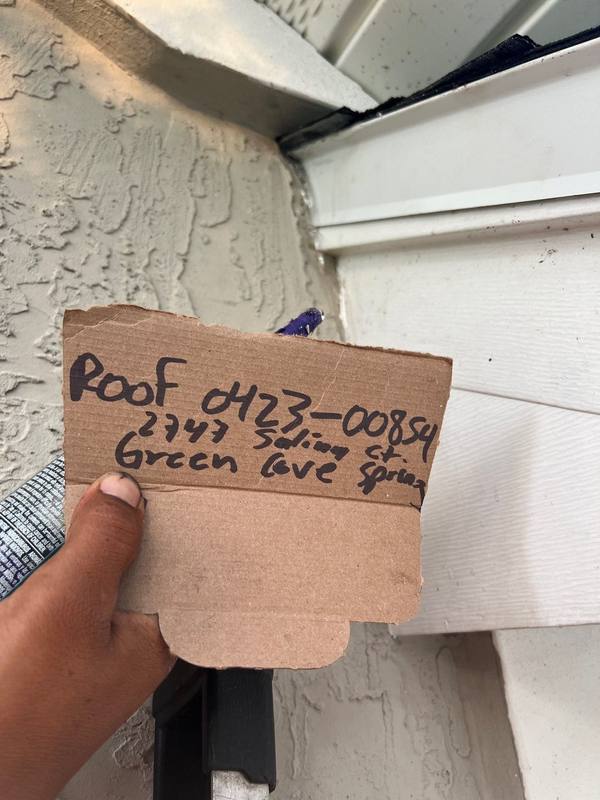 Roof 0423-00854
2747 Saling ct.
Green Cove Spring